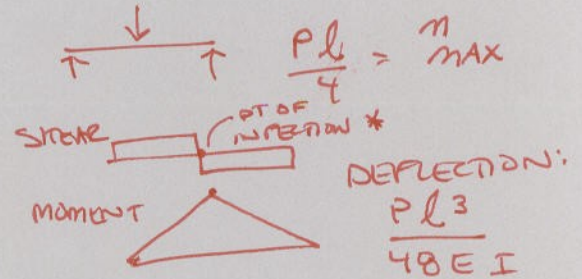 Pl/4 = M MAX
SHEAR
PT OF
INFLECTION *
MOMENT
DEFLECTION:
Pl³/48EI